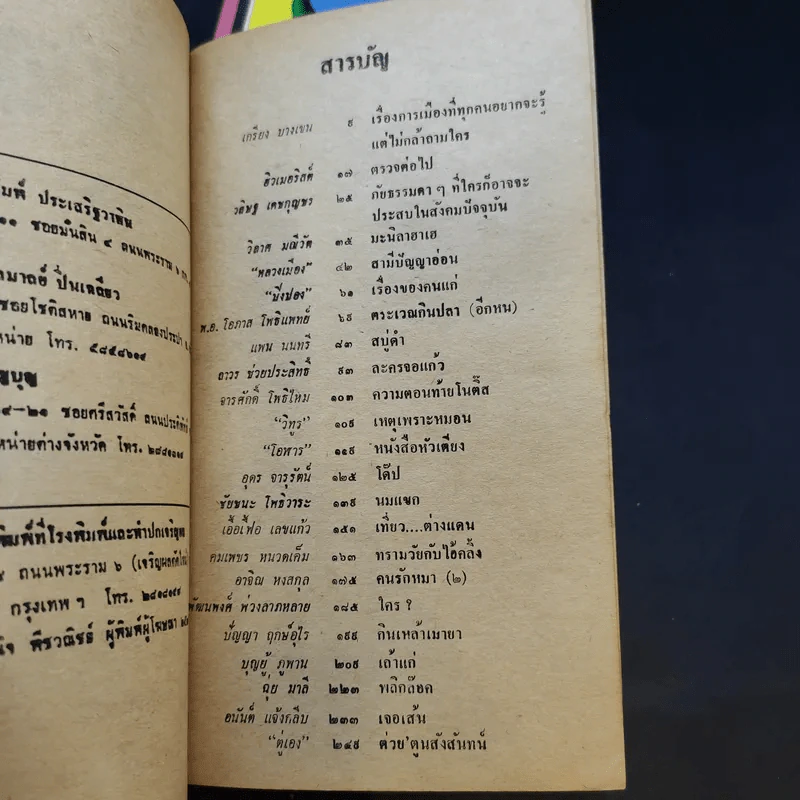 มพ์ ประเสริฐวาทิน
๑๑ ซอยมันสิน ๔ ถนนพระราม ๖
ปิ่นเฉลียว
ซอยโชติสหาย ถนนริมคลองประปา
หน่าย โทร. ๕๘๕๘๖๑๙
ญบุญ
๙-๒๑ ซอยศรีสวัสดิ์ ถนนประดิพัทธ์
หน่ายต่างจังหวัด โทร.
พิมพ์ที่โรงพิมพ์และทำปกเจริญผล
ถนนพระราม ๖ (เจริญผล
กรุงเทพฯ โทร.
พีรวณิชย์ ผู้พิมพ์ผู้โฆษณา
สารบัญ
เกรียง บางเขน ๙ เรื่องการเมืองที่ทุกคนอยากจะรู้
แต่ไม่กล้าถามใคร
ฮิวเมอริสต์ ๑๗ ตรวจต่อไป
วสิษฐ เดชกุญชร ๒๕ ภัยธรรมดา ๆ ที่ใครก็อาจจะ
ประสบในสังคมปัจจุบัน
วิลาศ มณีวัต ๓๕ มะนิลาฮาเฮ
“หลวงเมือง” ๔๒ สามีปัญญาอ่อน
“ปิ่งปอง” ๖๑ เรื่องของคนแก่
พ.อ. โอภาส โพธิแพทย์ ๖๙ ตระเวณกินปลา (อีกหน)
แพน นนทรี ๘๓ สบู่ดำ
ถาวร ช่วยประสิทธิ์ ๙๓ ละครจอแก้ว
จารศักดิ์ โพธิ์ไหม ๑๐๓ ความตอนท้ายโนติ๊ส
“วิทูร” ๑๐๙ เหตุเพราะหมอน
“โอฬาร” ๑๑๙ หนังสือหัวเตียง
อุดร จารุรัตน์ ๑๒๕ โด๊ป
ชัยชนะ โพธิวาระ ๑๓๙ นมแขก
เอื้อเฟื้อ เลขแก้ว ๑๕๑ เที่ยว....ต่างแดน
คมเพชร หนวดเค็ม ๑๖๓ ทรามวัยกับไอ้คลิ้ง
อาจิณ หงสกุล ๑๗๕ คนรักหมา (๒)
พัฒนพงศ์ พ่วงลาภหลาย ๑๘๕ ใคร ?
ปัญญา ฤกษ์อุไร ๑๙๙ กินเหล้าเมายา
บุญยู้ ภูพาน ๒๐๙ เถ้าแก่
ฉุ่ย มาลี ๒๒๓ พลิกล๊อค
อนันต์ แจ้งกลีบ ๒๓๓ เจอเส้น
“ตู่เอง” ๒๔๙ ต่วย'ตูนสังสันทน์